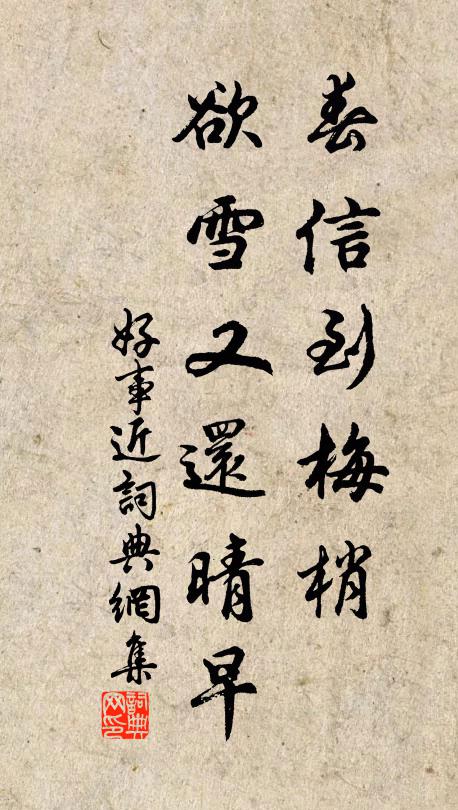 春信到梅梢
欲雪又還晴早
好事近詞典網集
詞典網印